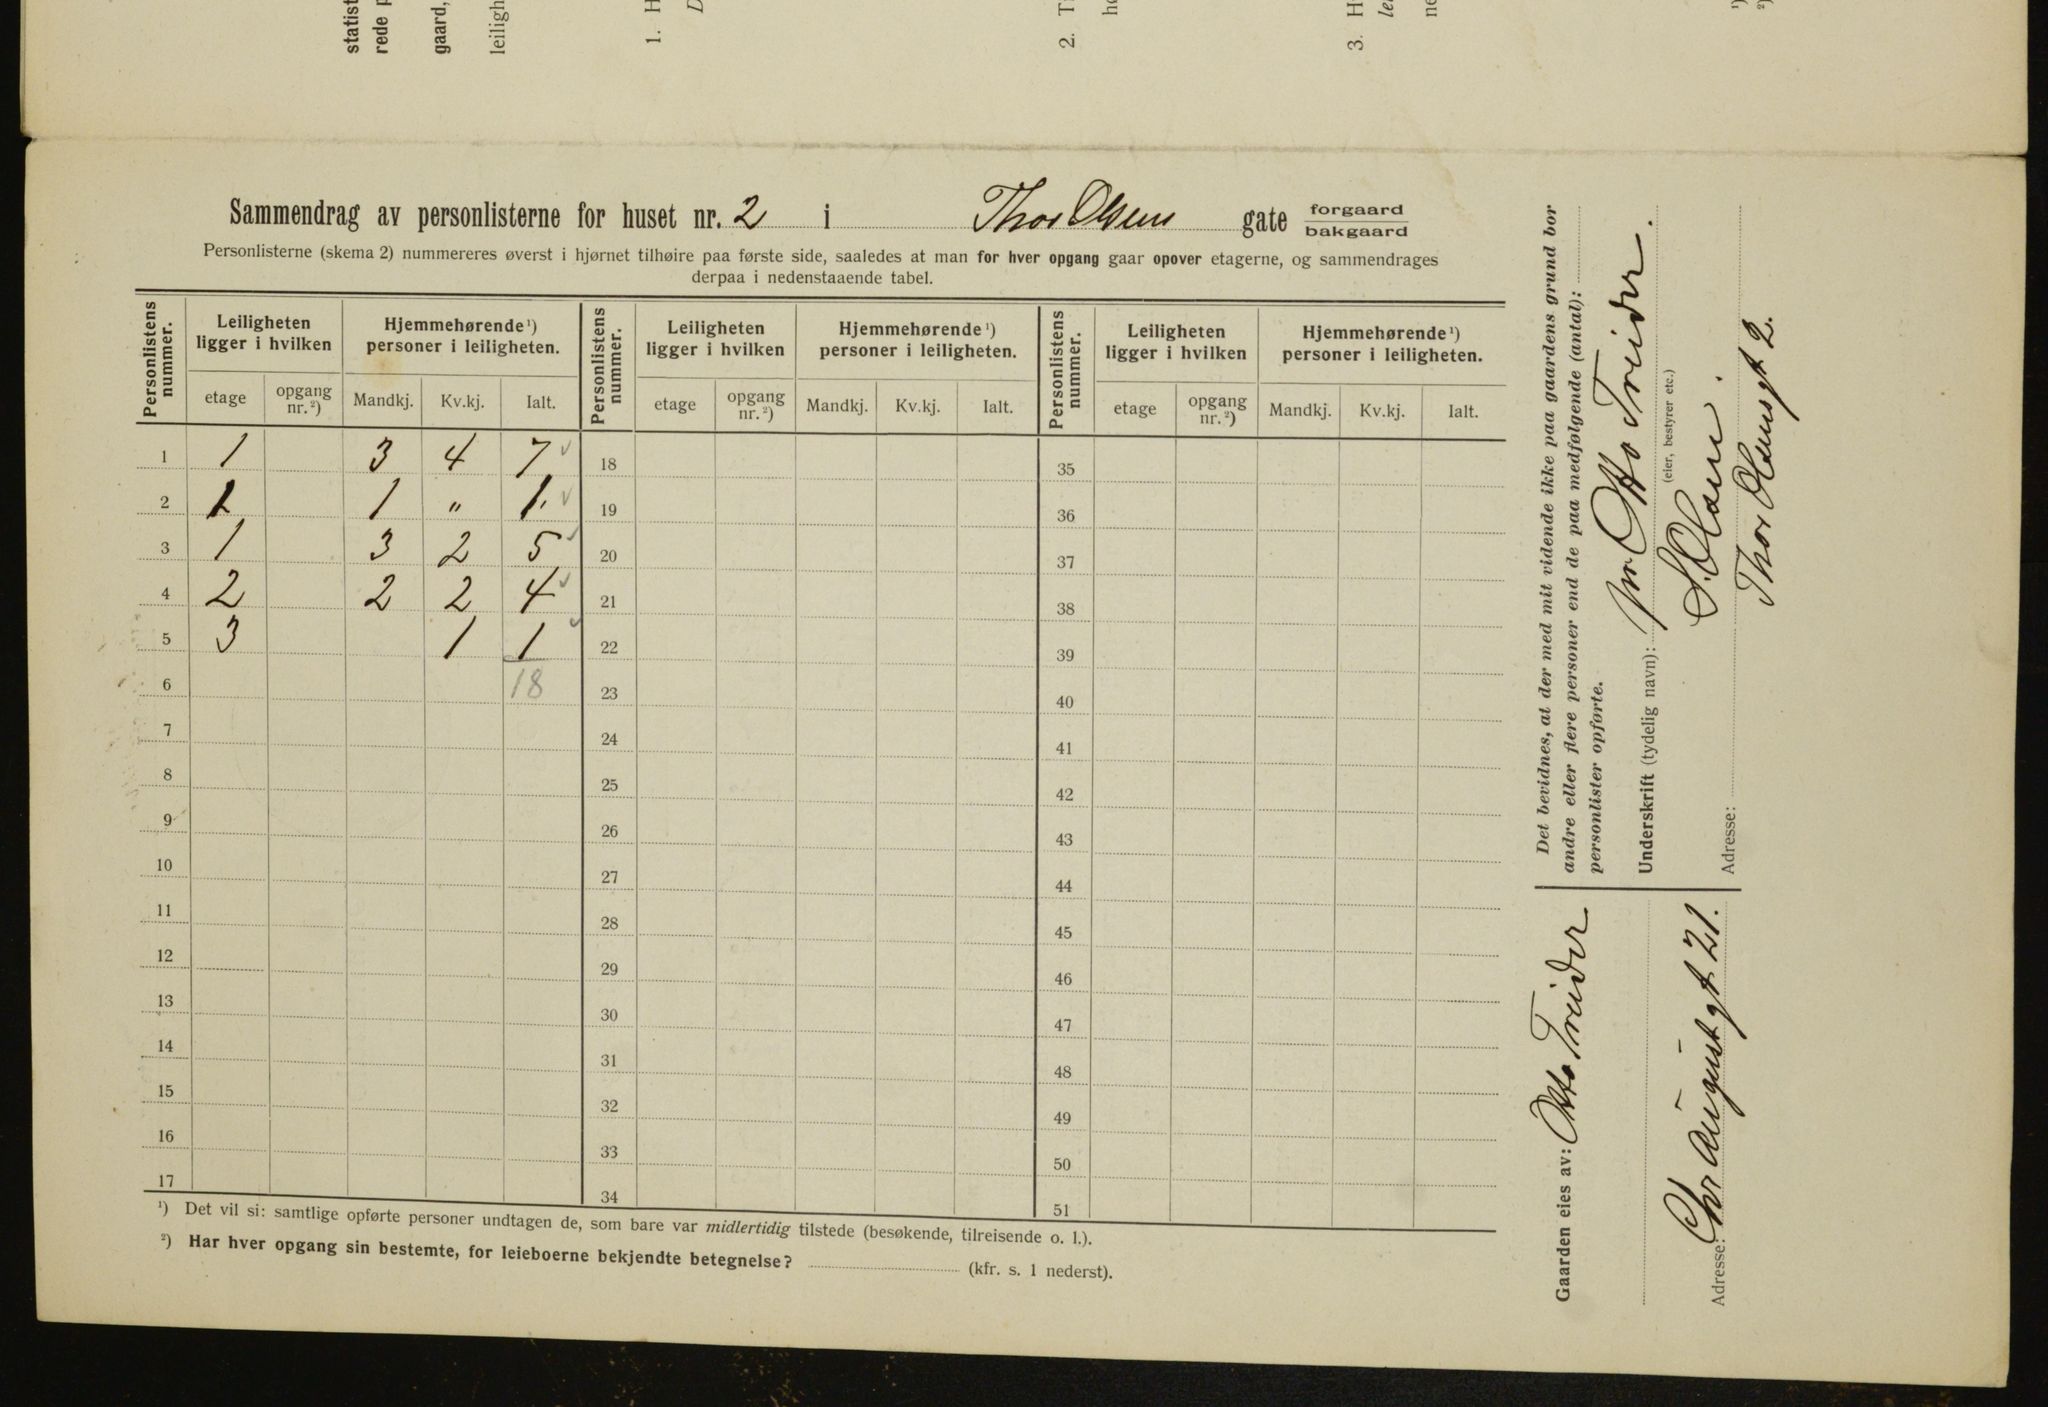 statist
rede p
gaard,
leiligh
1. H
D
2. T
he
3. H
lei
ne
¹)
²)
Sammendrag av personlisterne for huset nr. 2 i Thor Olsens gate forgaard
bakgaard
Personlisterne (skema 2) nummereres øverst i hjørnet tilhøire paa første side, saaledes at man for hver opgang gaar opover etagerne, og sammendrages
derpaa i nedenstaaende tabel.
Personlistens nummer. Leiligheten ligger i hvilken Hjemmehørende¹) personer i leiligheten. Personlistens nummer. Leiligheten ligger i hvilken Hjemmehørende¹) personer i leiligheten. Personlistens nummer. Leiligheten ligger i hvilken Hjemmehørende¹) personer i leiligheten.
etage opgang nr.²) Mandkj. Kv.kj. Ialt. etage opgang nr.²) Mandkj. Kv.kj. Ialt. etage opgang nr.²) Mandkj. Kv.kj. Ialt.
1 1 3 4 7 ✓ 18 35
2 1 1 „ 1. ✓ 19 36
3 1 3 2 5 ✓ 20 37
4 2 2 2 4 ✓ 21 38
5 3 1 1 ✓ 22 39
6 18 23 40
7 24 41
8 25 42
9 26 43
10 27 44
11 28 45
12 29 46
13 30 47
14 31 48
15 32 49
16 33 50
17 34 51
¹) Det vil si: samtlige opførte personer undtagen de, som bare var midlertidig tilstede (besøkende, tilreisende o. l.).
²) Har hver opgang sin bestemte, for leieboerne bekjendte betegnelse? (kfr. s. 1 nederst).
Det bevidnes, at der med mit vidende ikke paa gaardens grund bor
andre eller flere personer end de paa medfølgende (antal):
personlister opførte.
Underskrift (tydelig navn): pr. Otto Treider.
(eier, bestyrer etc.)
S. Olsen.
Adresse: Thor Olsensgt 2.
Gaarden eies av: Otto Treider
Adresse: Chr Augustgt 21.